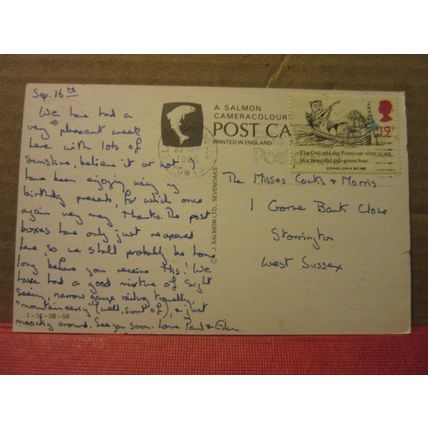 Sep. 16th
We have had a
very pleasant week
here with lots of
sunshine, believe it or not, &
have been enjoying using my
birthday presents, for which once
again very many thanks. The post
boxes have only just reopened
here so we shall probably be home
long before you receive this! We
have had a good mixture of sight
seeing, narrow gauge railway travelling,
"mountaineering" (well, sort of), & just
messing around. See you soon. Love Paul &
1-14-08-04
A SALMON
CAMERACOLOUR
POST CA
PRINTED IN ENGLAND
J. SALMON LTD., SEVENOAKS
19p
The Owl and the Pussy-cat went to sea
In a beautiful pea-green boat,
EDWARD LEAR
The Misses Cooks & Morris
1 Gorse Bank Close
Storrington
West Sussex